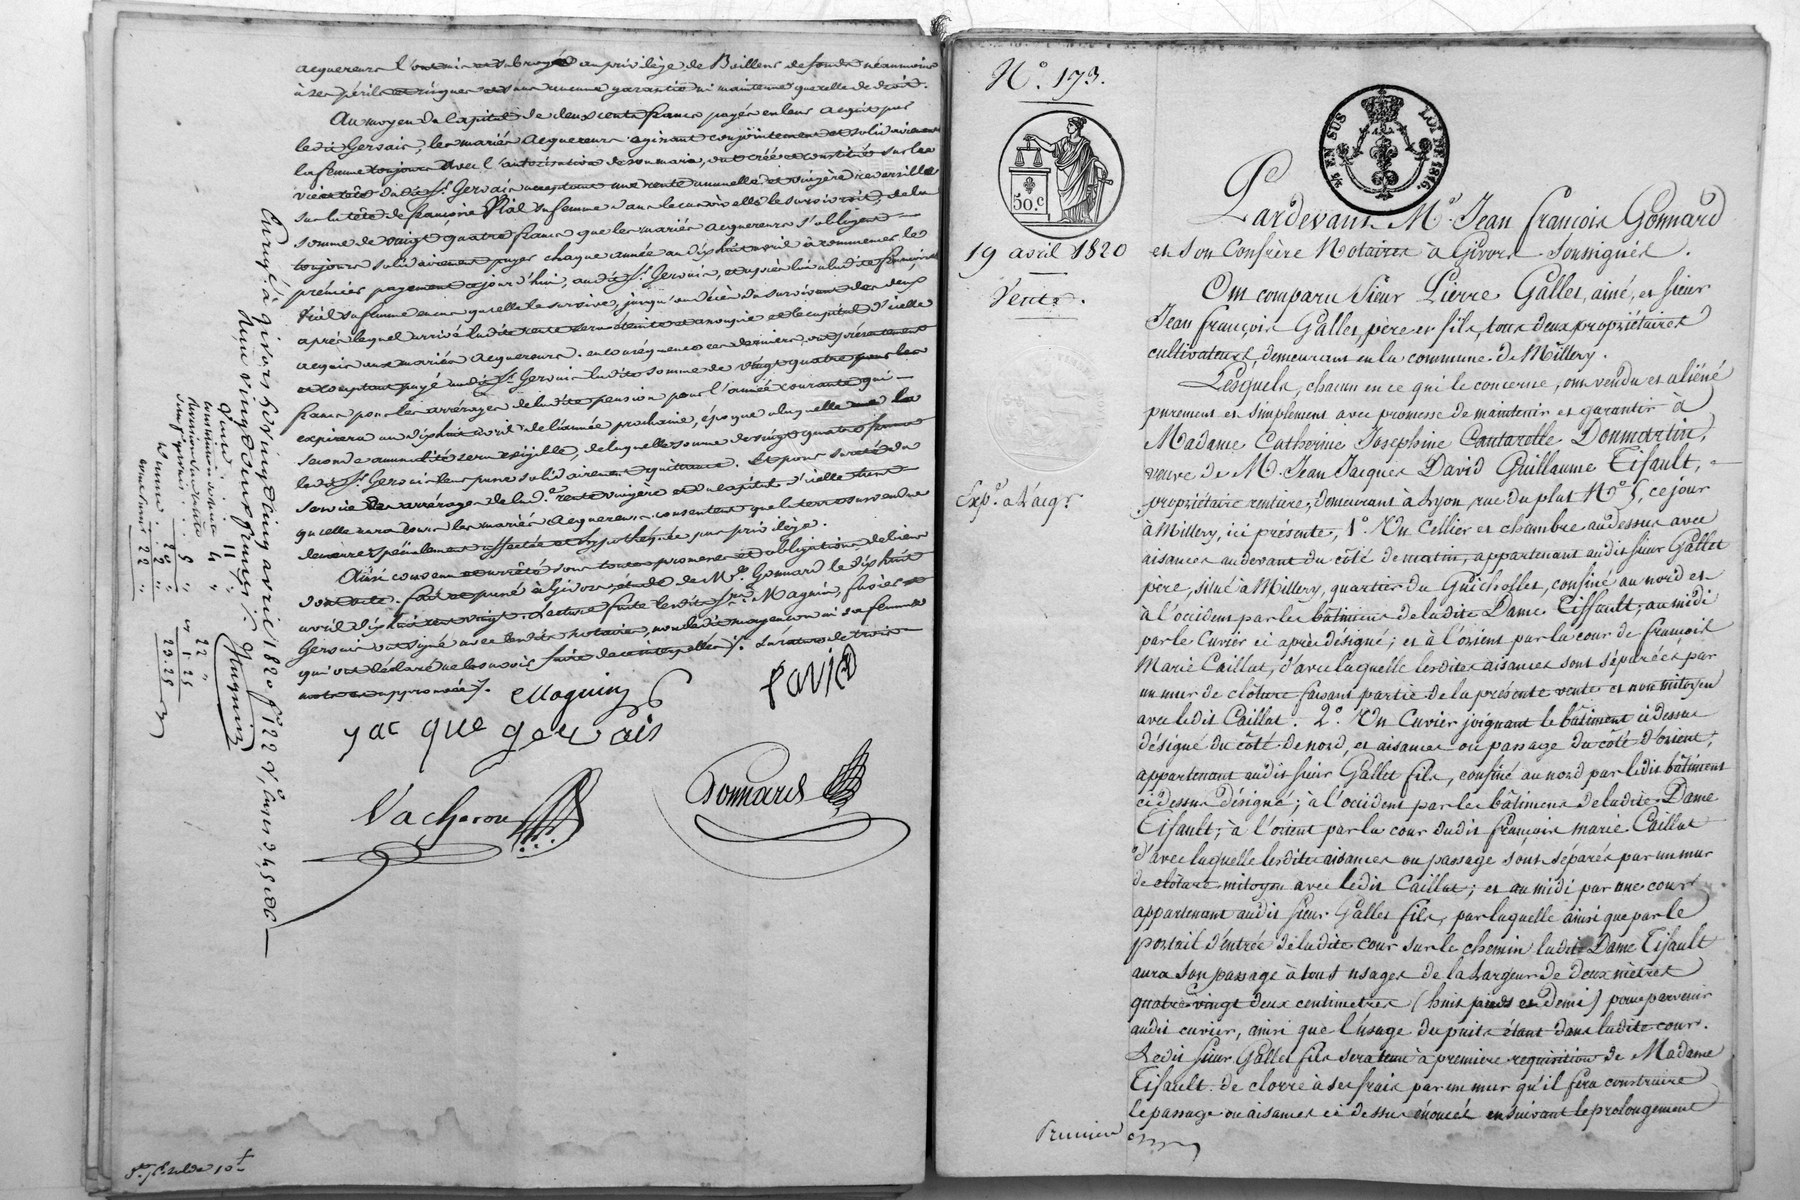 acquereurs l'ont mis et subrogé au privilège de Bailleur de fonds néanmoins
à ses périls et risques et sans aucune garantie ni maintenue quelle de droit.
Au moyen du Capital de deux cents francs payés en leur acquit par
ledit Gervais, les mariés acquereurs agissant conjointement et solidairement
la femme toujours avec l'autorisation de son mari, ont créé et constitué sur la
vie et tête dudit Sr. Gervais acceptant une rente annuelle et viagère reversible
sur la tête de françoise Vial sa femme dans le cas où elle le survivroit, de la
somme de vingt quatre francs que les mariés acquereurs s'obligent
toujours solidairement payer chaque année au dixhuit avril à commencer le
premier payement à jour d'hui, audit Sr. Gervais, et après lui à ladite françoise
Vial sa femme en cas qu'elle le survive, jusqu'au décès du survivant des deux
après lequel arrivé ladite rente sera éteinte et amortie et le capital d'icelle
acquis aux mariés acquereurs. en conséquence ces derniers ont présentement
et comptant payé audit Sr. Gervais ladite somme de vingt quatre francs
pour les arrérages de ladite pension pour l'année courante qui
expirera au dixhuit avril de l'année prochaine, époque à laquelle une
seconde annualité sera exigible, de laquelle somme de vingt quatre francs
ledit Sr. Gervais leur passe solidairement quittance. Et pour sureté du
service des arrérages de la de. rente viagère et du capital d'icelle tant
qu'elle aura cours les mariés acquereurs consentent que la terre susvendue
demeure spécialement affectée et hypothéquée par privilège.
Ainsi convenu et arrêté sous toutes promesses et obligations de biens
dont acte. fait et passé à Givors, étude de Me. Gonnard le dixhuit
avril dixhuit cent vingt. Lecture faite lesdits Srs. Maguin, favier et
Gervais ont signé avec lesdits notaires, non ledit moyencon ni sa femme
qui ont déclaré ne le savoir faire de ce interpellés /.
Maguin
favier
jacque gervais
Vacheron
Gonnard
Enregé. à givors le vingt cinq avril 1820 f° 122 V°, cases 3, 4, 5 &c
Reçu vingt deux francs /.
Maguin
N°. 173.
50. c
EN SUS
LOI DE 1816.
19 avril 1820
Vente.
Exp°. à l'acqr.
Pardevant Me. Jean françois Gonnard
et son Confrère Notaires à Givors soussignés.
Ont comparu Sieur Pierre Gallet, ainé, et sieur
Jean françois Gallet, père et fils, tous deux propriétaires
cultivateurs, demeurant en la commune de Millery.
Lesquels, chacun en ce qui le concerne, ont vendu et aliéné
purement et simplement avec promesse de maintenir et garantir à
Madame Catherine Josephine Cantarelle Donmartin,
veuve de M. Jean Jacques David Guillaume Tifault,
propriétaire rentière, demeurant à Lyon, rue du plat N° 5, ce jour
à Millery, ici présente, 1°. Un Cellier et chambre au dessus avec
aisances au devant du côté de matin, appartenant audit sieur Gallet
père, situé à Millery, quartier du Guichollet, confiné au nord et
à l'occident par les bâtiments de ladite Dame Tiffault; au midi
par le Cuvier ci après désigné; et à l'orient par la cour de françois
Marie Caillat, d'avec laquelle lesdites aisances sont séparées par
un mur de clôture faisant partie de la présente vente et non mitoyen
avec ledit Caillat. 2°. Un Cuvier joignant le bâtiment ci dessus
désigné du côté de nord, et aisances ou passage du côté d'orient,
appartenant audit sieur Gallet fils, confiné au nord par ledit bâtiment
ci dessus désigné; à l'occident par les bâtiments de ladite Dame
Tifault; à l'orient par la cour dudit françois marie Caillat
d'avec laquelle lesdites aisances ou passage sont séparés par un mur
de clôture mitoyen avec ledit Caillat; et au midi par une cour
appartenant audit sieur Gallet fils, par laquelle ainsi que par le
portail d'entrée de ladite cour sur le chemin ladite Dame Tifault
aura son passage à tous usages de la largeur de deux mètres
quatre vingt deux centimètres (huit pieds et demi) pour parvenir
audit cuvier, ainsi que l'usage du puits étant dans ladite cour.
Ledit sieur Gallet fils sera tenu à première requisition de Madame
Tifault de clorre à ses frais par un mur qu'il fera construire
le passage ou aisances ci dessus énoncés en suivant le prolongement
Premier